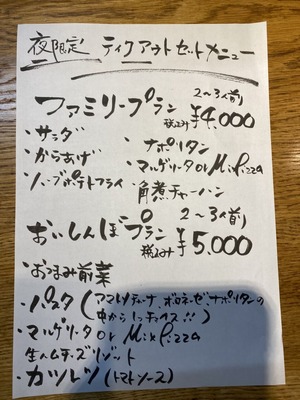 夜限定 テイクアウトセットメニュー
ファミリープラン 2〜3人前 税込み ¥4,000
・サラダ ・ナポリタン
・からあげ ・マルゲリータ or Mix Pizza
・ハーブポテトフライ ・角煮チャーハン
おいしんぼプラン 2〜3人前 税込み ¥5,000
・おつまみ前菜
・パスタ(アマトリチャーナ、ボロネーゼ、ナポリタンの
中から1っチョイス!!)
・マルゲリータ or Mix Pizza
生ハムチーズリゾット
・カツレツ(トマトソース)